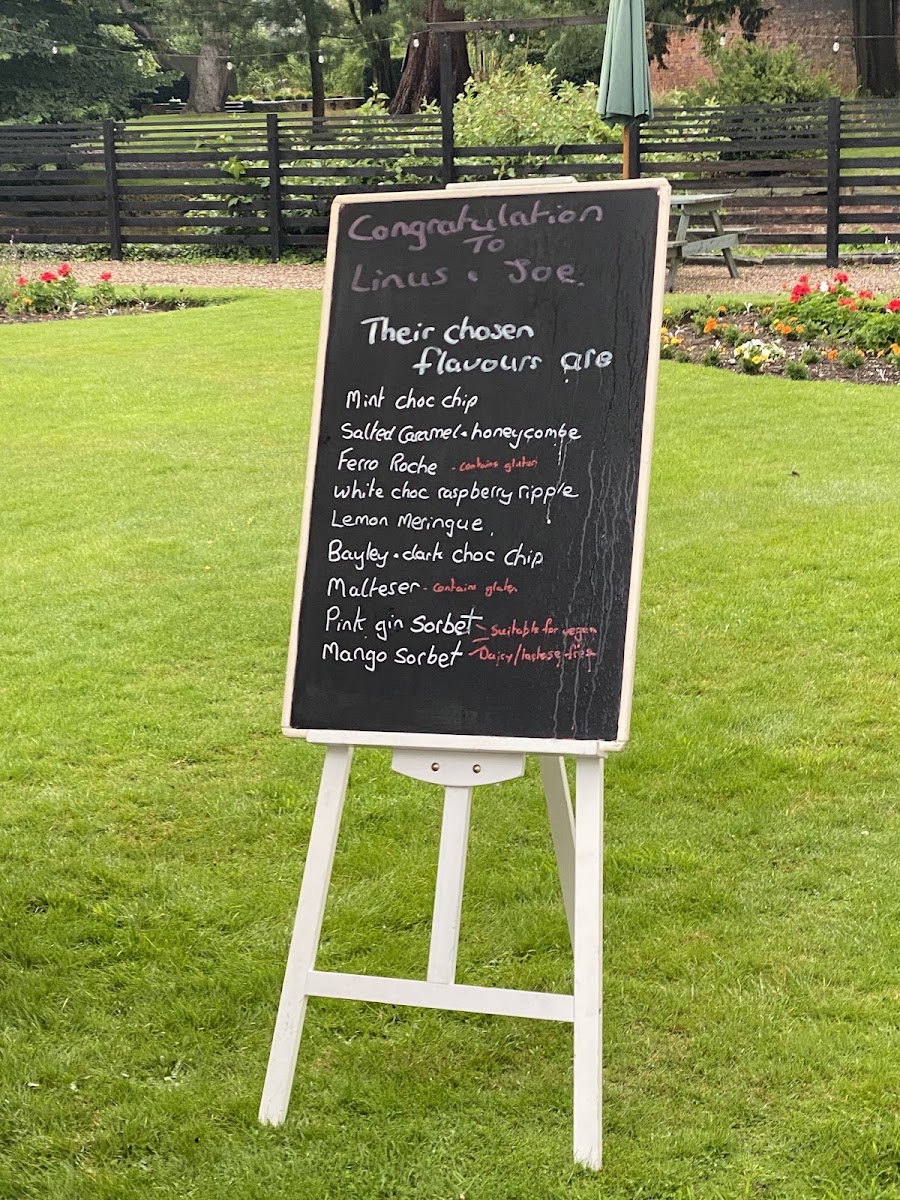 Congratulation
To
Linus • Joe.
Their chosen
flavours are
Mint choc chip
Salted Caramel • honeycombe
Ferro Roche - contains gluten
white choc raspberry ripple
Lemon Meringue
Bayley • dark choc chip
Malteser - contains gluten
Pink gin Sorbet - Suitable for vegan
Mango Sorbet - Dairy/lactose free